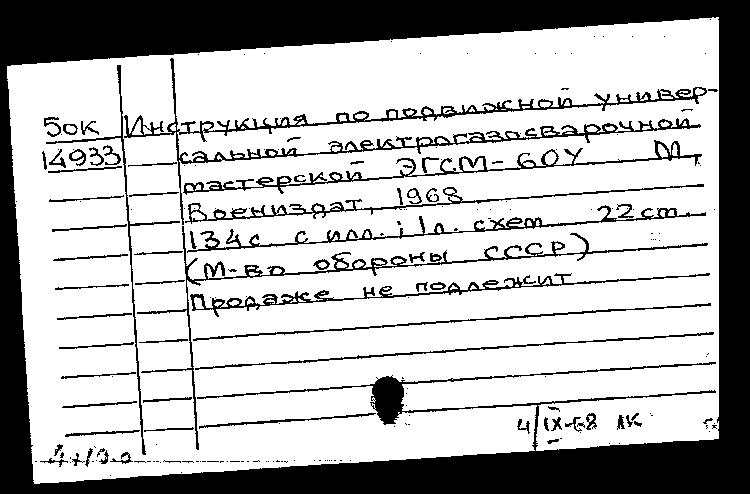 50к Инструкция по подвижной универ-
14933 сальной электрогазосварочной
мастерской ЭГСМ-60У М.,
Воениздат, 1968
134с. с илл.; 1л. схем 22cm.
(М-во обороны СССР)
Продаже не подлежит
4/IX-68 ЛК